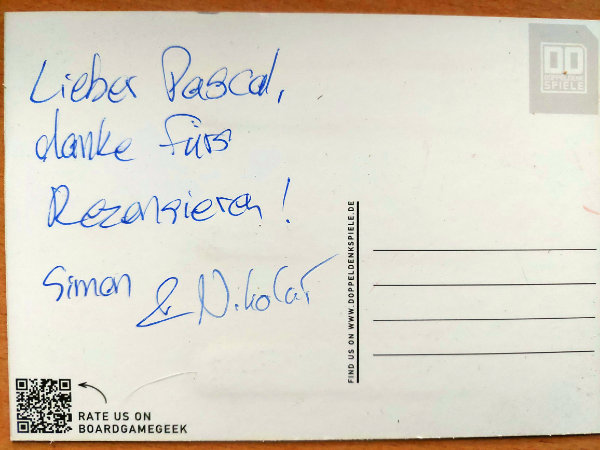 Lieber Pascal,
danke fürs
Rezensieren!
Simon & Nikolai
DD
DOPPELDENK
SPIELE
FIND US ON WWW.DOPPELDENKSPIELE.DE
RATE US ON
BOARDGAMEGEEK